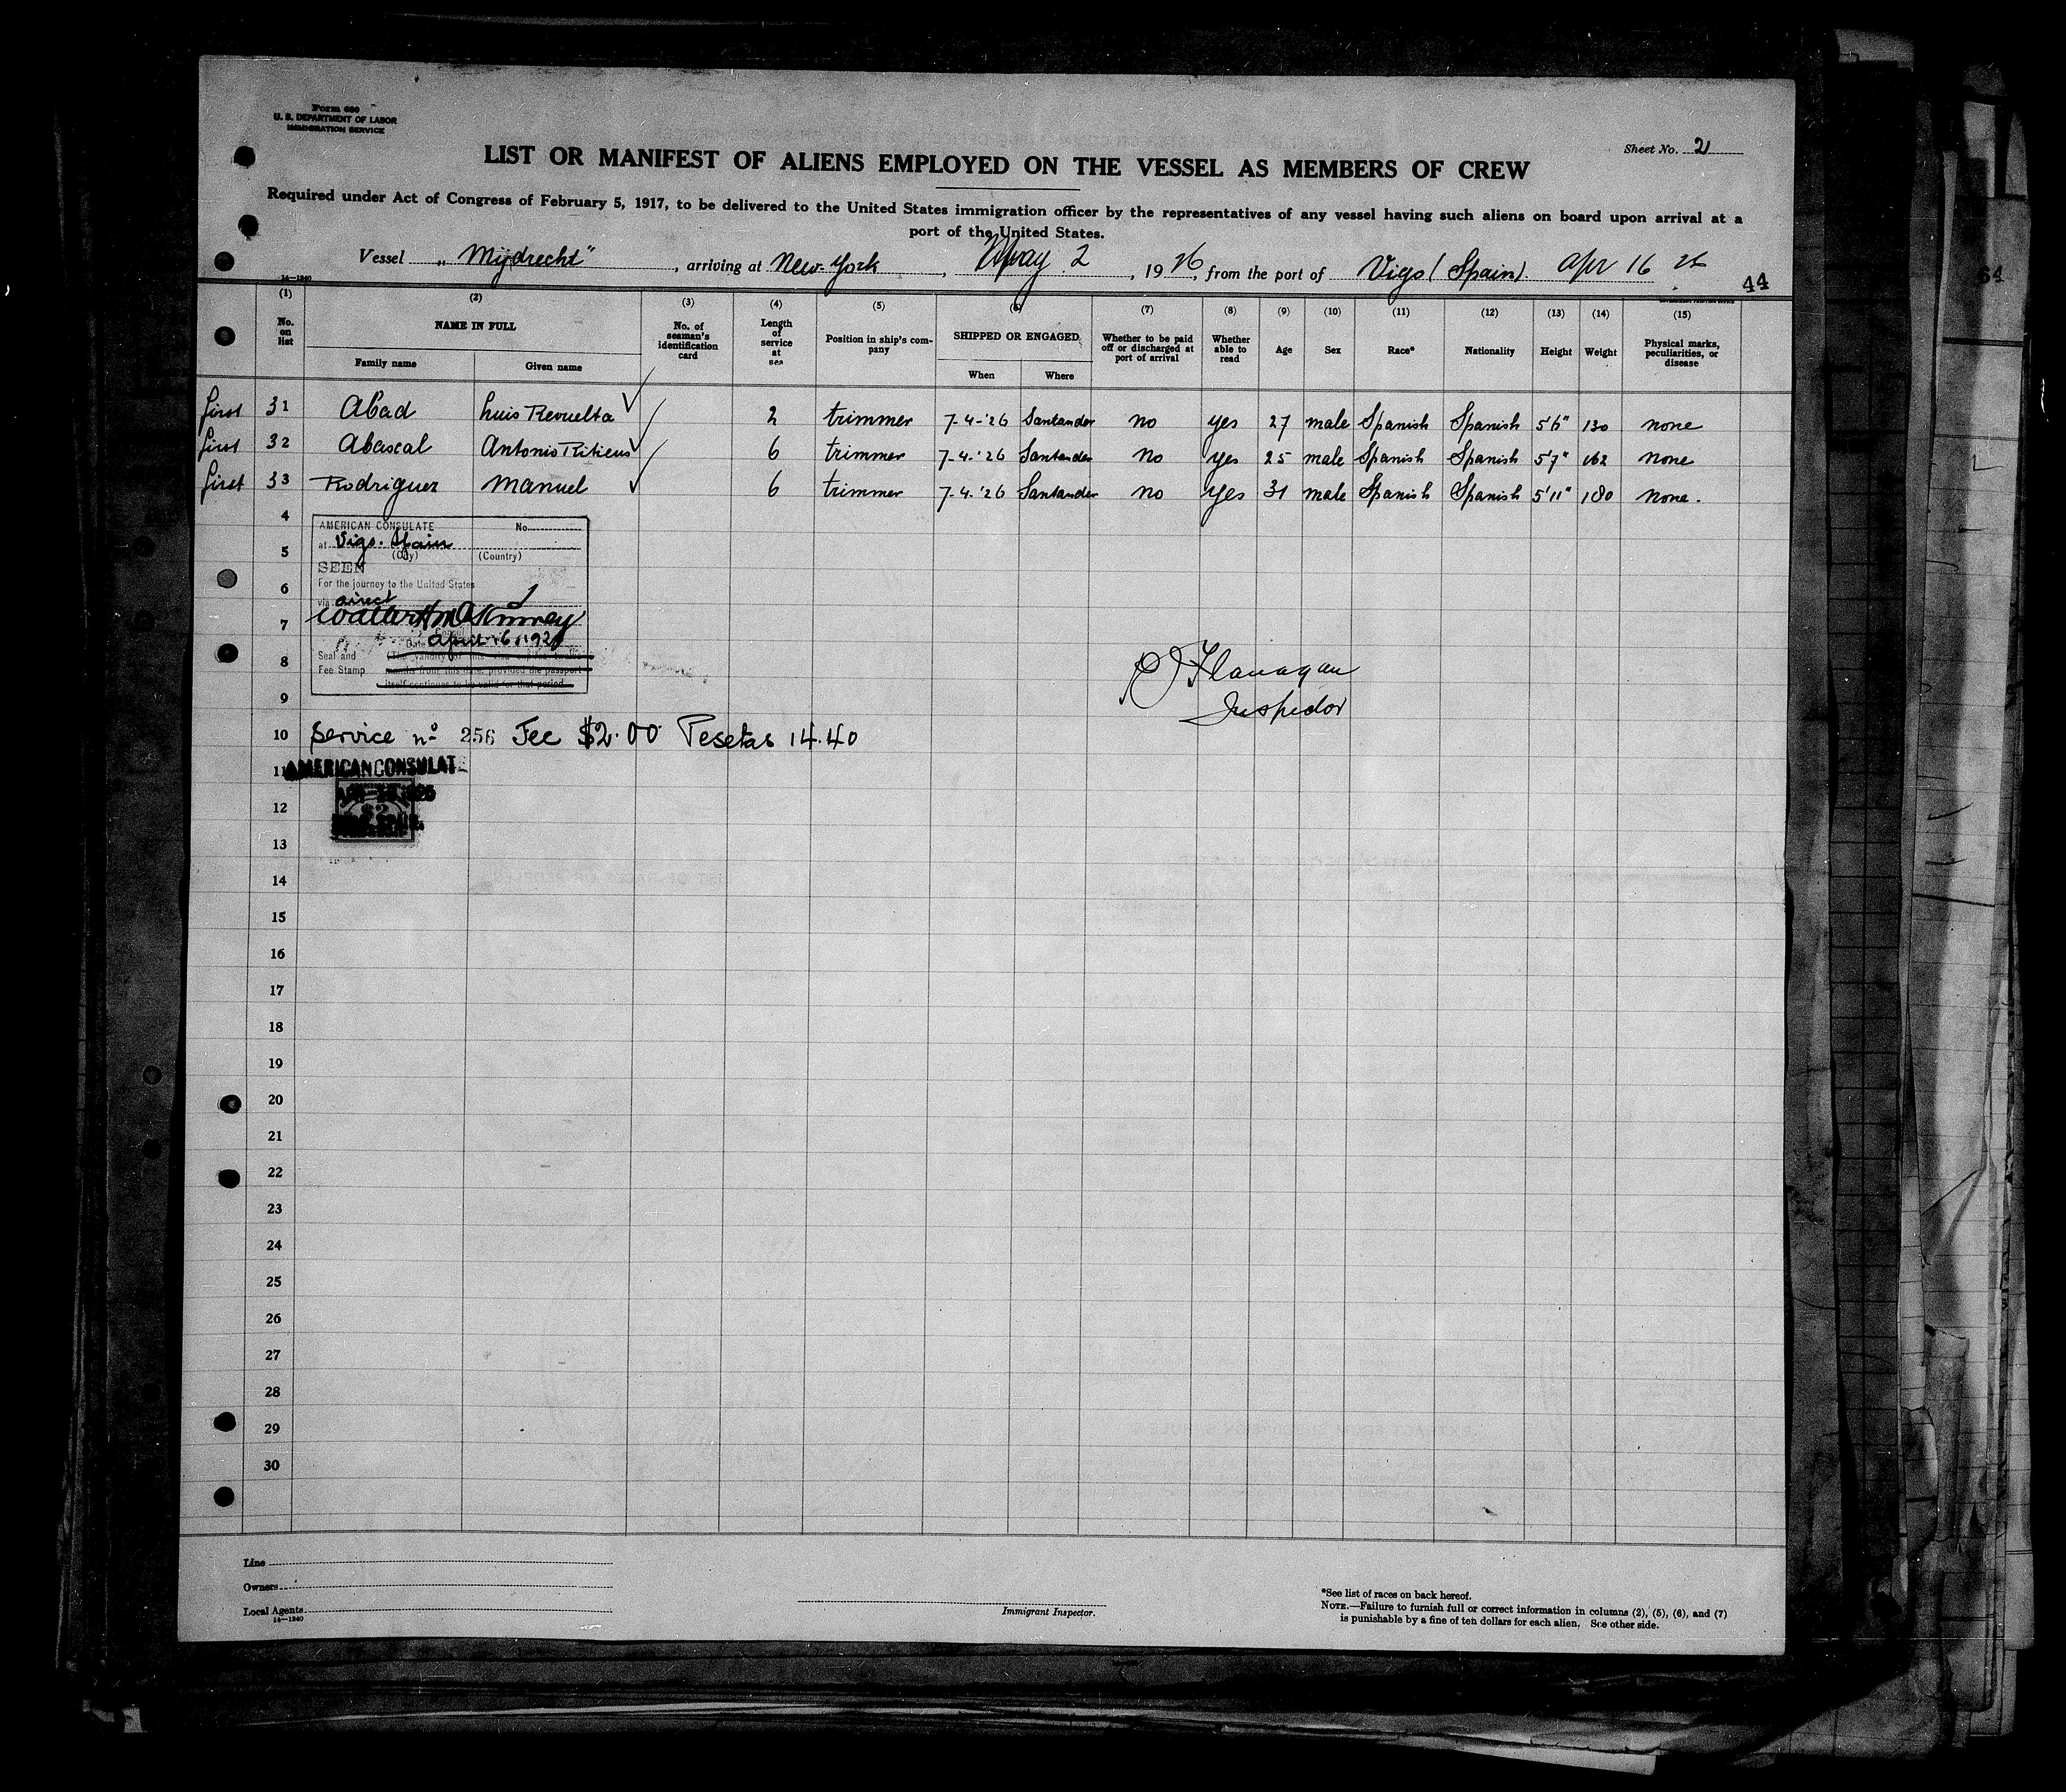 Form 680
U. S. DEPARTMENT OF LABOR
IMMIGRATION SERVICE
Sheet No. 2
LIST OR MANIFEST OF ALIENS EMPLOYED ON THE VESSEL AS MEMBERS OF CREW
Required under Act of Congress of February 5, 1917, to be delivered to the United States immigration officer by the representatives of any vessel having such aliens on board upon arrival at a
port of the United States.
Vessel „Mijdrecht", arriving at New-York, May 2, 1926, from the port of Vigo (Spain). Apr 16
14—1240
44
(1) (2) (3) (4) (5) (6) (7) (8) (9) (10) (11) (12) (13) (14) (15)
No. on list NAME IN FULL No. of seaman's identification card Length of service at sea Position in ship's company SHIPPED OR ENGAGED Whether to be paid off or discharged at port of arrival Whether able to read Age Sex Race* Nationality Height Weight Physical marks, peculiarities, or disease
Family name Given name When Where
first 31 Abad Luis Revuelta 2 trimmer 7-4-'26 Santander no yes 27 male Spanish Spanish 5'6" 130 none
first 32 Abascal Antonio 6 trimmer 7-4-'26 Santander no yes 25 male Spanish Spanish 5'7" 162 none
first 33 Rodriguez Manuel 6 trimmer 7-4-'26 Santander no yes 31 male Spanish Spanish 5'11" 180 none.
4
AMERICAN CONSULATE No.
at Vigo. Spain
5
(City) (Country)
SEEN
6
For the journey to the United States
via direct
7
Date April 16, 192
Seal and (The validity of this
8
Fee Stamp months from this date, provided the passport
itself continues to be valid for that period
Flanagan
Inspector
9
10 Service nº 256 Fee $2.00 Pesetas 14.40
11 AMERICAN CONSULATE
12
$2
13
14
15
16
17
18
19
20
21
22
23
24
25
26
27
28
29
30
Line
Owners
Local Agents
14—1240
Immigrant Inspector.
*See list of races on back hereof.
NOTE.—Failure to furnish full or correct information in columns (2), (5), (6), and (7)
is punishable by a fine of ten dollars for each alien. See other side.
64